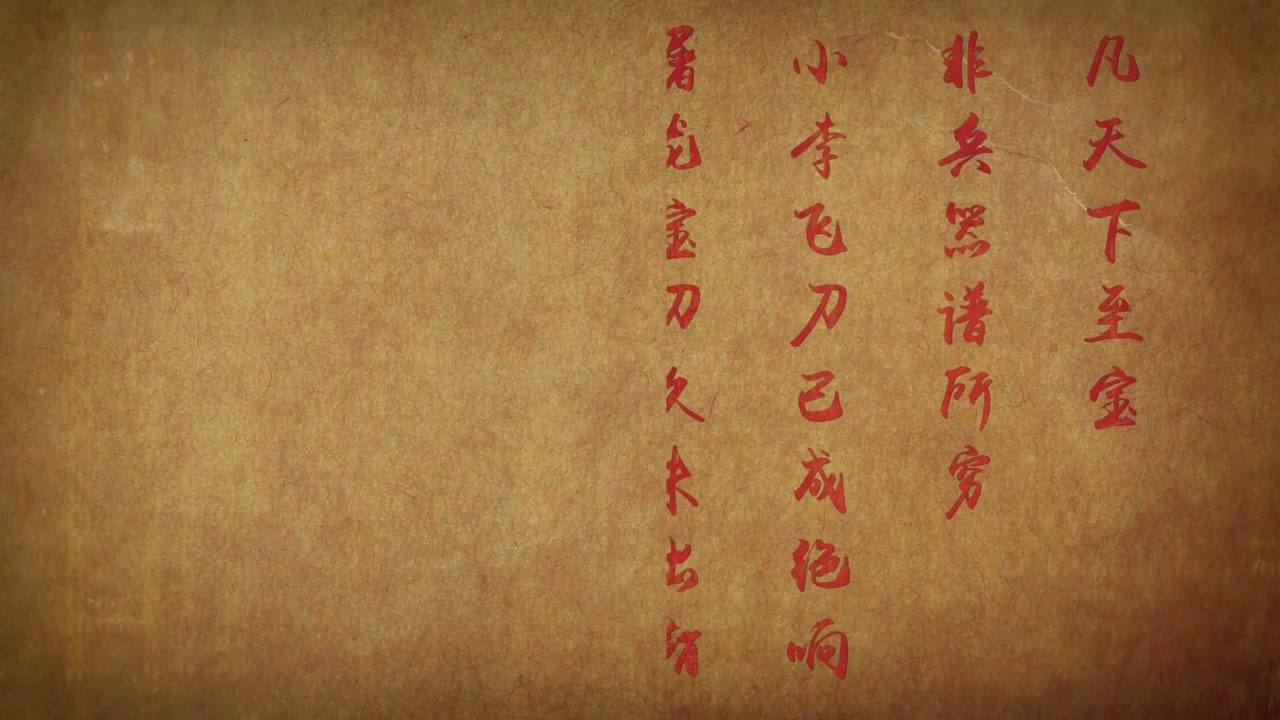 凡天下至宝
非兵器谱所穷
小李飞刀已成绝响
屠龙宝刀久未出鞘